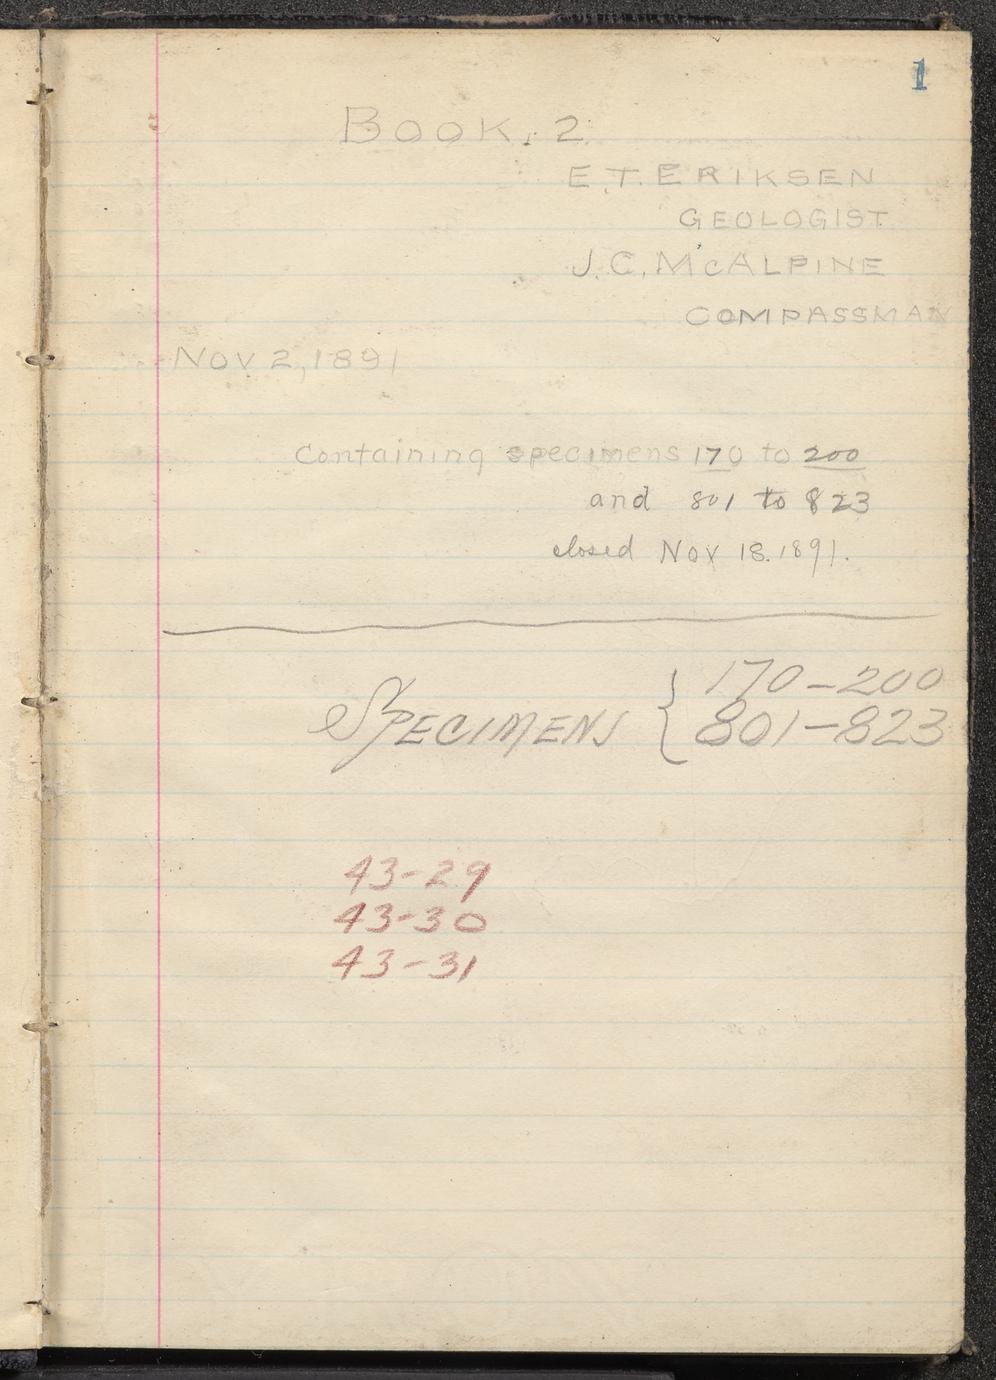 1
BOOK. 2
E.T. ERIKSEN
GEOLOGIST
J.C. McALPINE
COMPASSMAN
NOV 2, 1891
Containing specimens 170 to 200
and 801 to 823
closed Nov 18. 1891.
SPECIMENS { 170-200
801-823
43-29
43-30
43-31